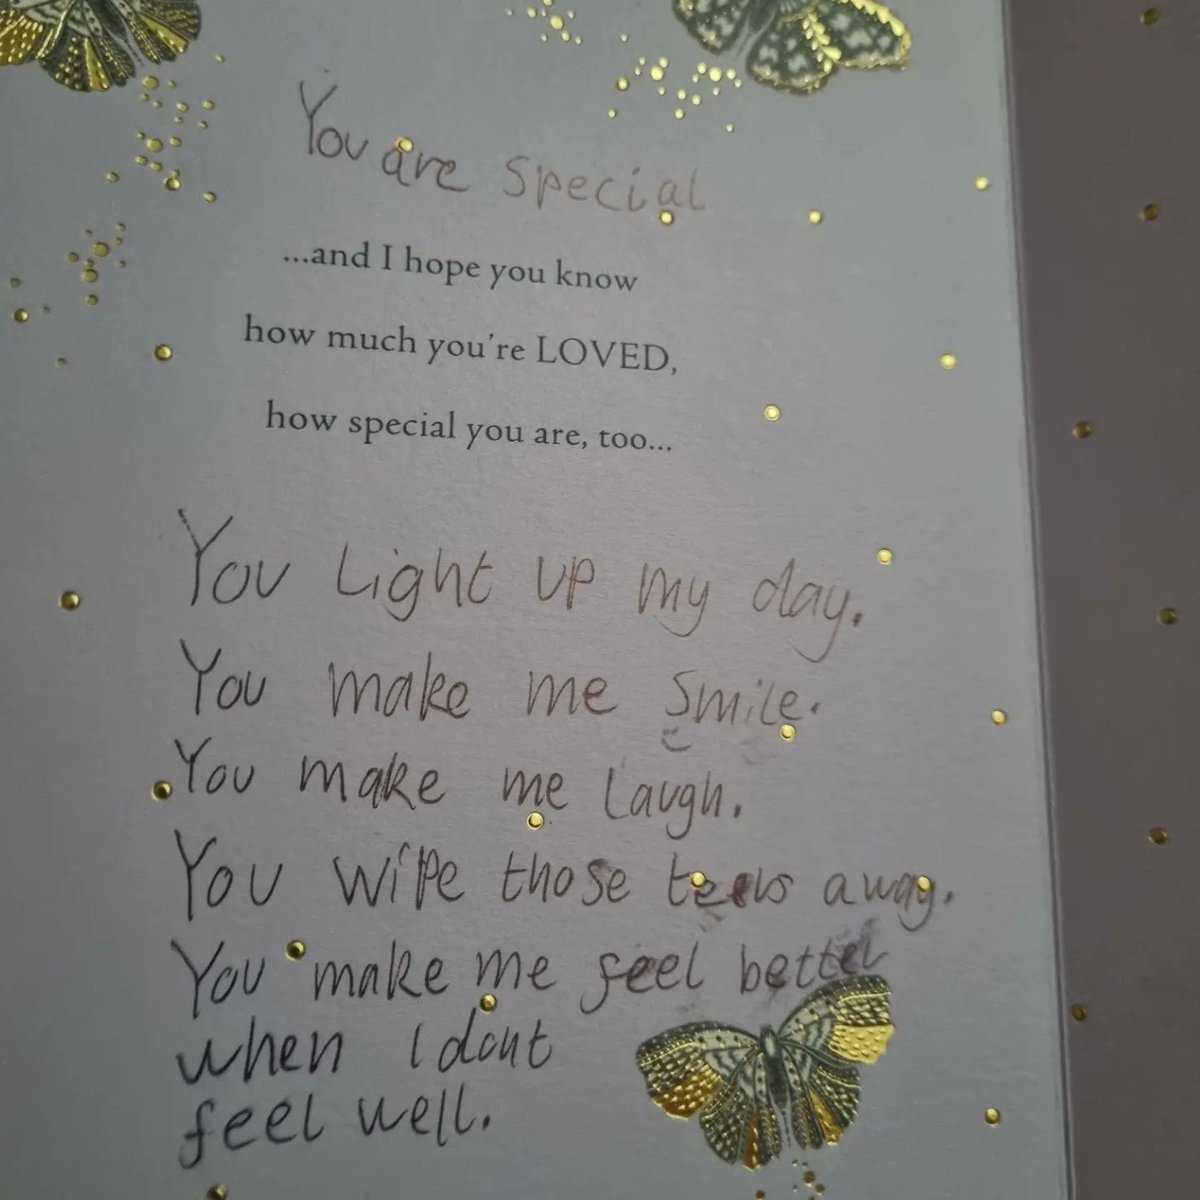 You are special
...and I hope you know
how much you're LOVED,
how special you are, too...
You Light up my day.
You make me smile.
You make me laugh.
You wipe those tears away.
You make me feel better
when I dont
feel well.